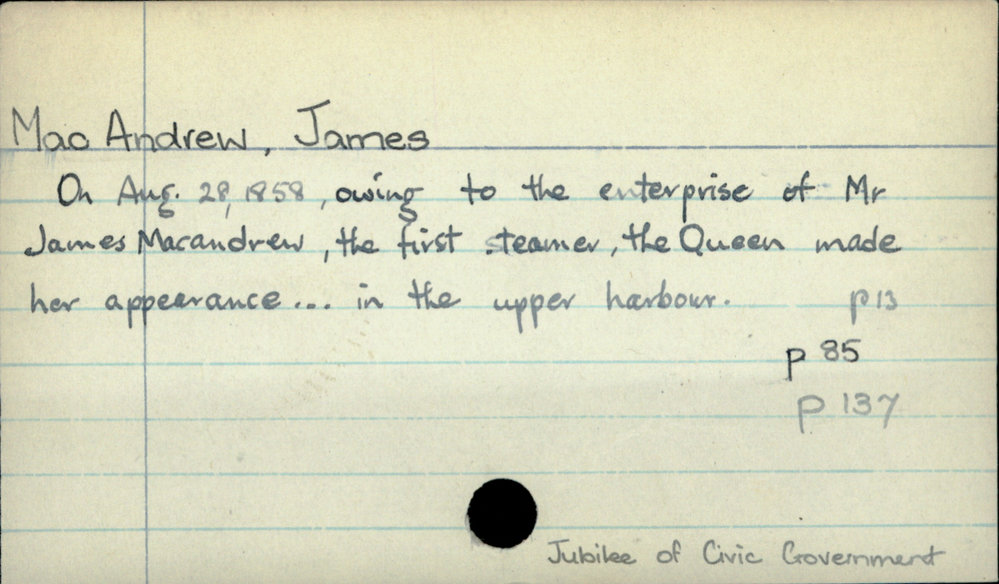 Mac Andrew, James
On Aug. 28, 1858, owing to the enterprise of Mr
James Macandrew, the first steamer, the Queen made
her appearance... in the upper harbour. p 13
p 85
p 137
Jubilee of Civic Government